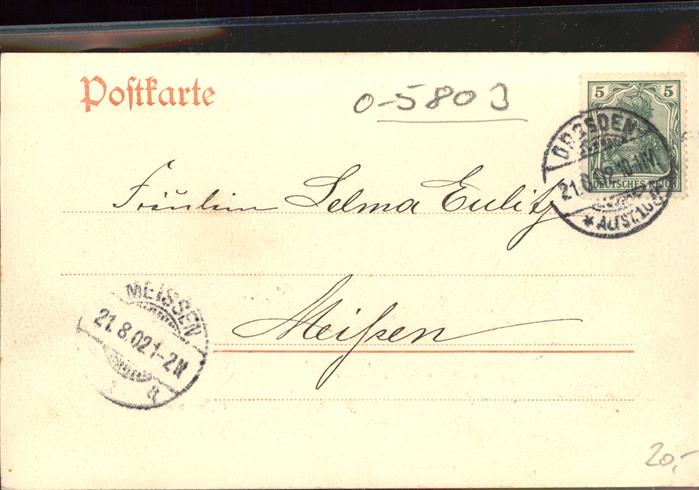 Postkarte
0-5803
5 5
DEUTSCHES REICH
DRESDEN
21.8.02
* ALTST.
Fräulein Selma Eulitz
MEISSEN
21.8.02 1-2N
Meißen
20,-